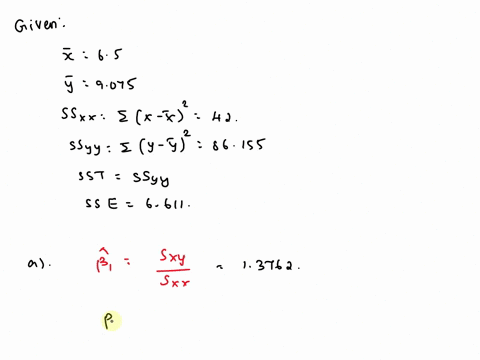 Given:
x̄ = 6.5
ȳ = 9.075
SSxx = Σ (x-x̄)² = 42.
SSyy = Σ (y-ȳ)² = 86.155
SST = SSyy
SSE = 6.611.
a). β̂₁ = Sxy / Sxx = 1.3762.
β